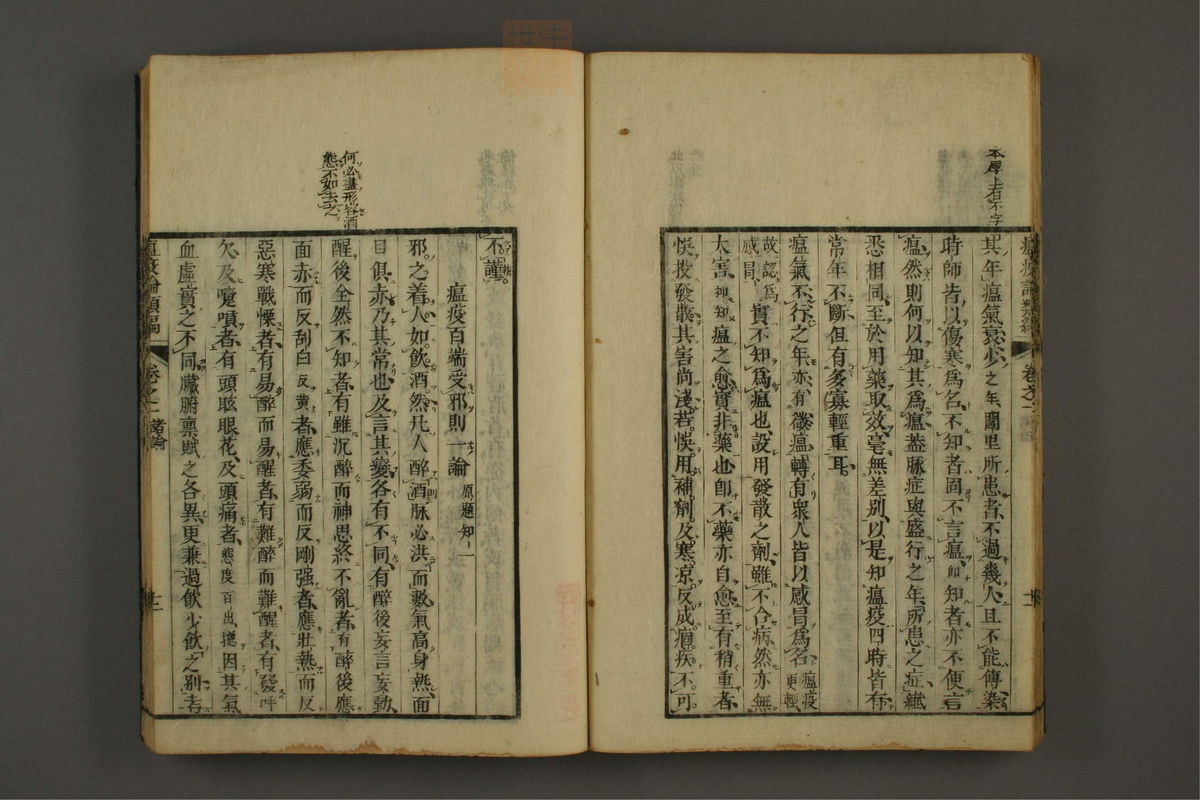 本厚上有不字
其年瘟氣衰少之年閭里所患者不過幾人且不能傳染
時師皆以傷寒為名不知者固不言瘟卽知者亦不便言
瘟然則何以知其爲瘟葢脉症與盛行之年所患之症纎
悉相同至於用藥取效毫無差別以是知瘟疫四時皆有
常年不斷但有多寡輕重耳
瘟氣不行之年亦有微瘟轉有衆人皆以感冒爲名瘟疫更輕
故認爲感冒實不知爲瘟也設用發散之劑雖不合病然亦無
大害瘟之愈實非藥也卽不藥亦自愈至有稍重者
悞投發散其害尚淺若悞用補劑及寒凉反成痼疾不可
不謹
瘟疫百端受邪則一論原題知一
邪之着人如飲酒然凡人醉酒脉必洪而數氣高身熱面
目俱赤乃其常也及言其變各有不同有醉後妄言妄動
醒後全然不知者有雖沉醉而神思終不亂者有醉後應
面赤而反刮白反黄者應委弱而反剛强者應壯熱而反
惡寒戰慄者有易醉而易醒者有難醉而難醒者有發呼
欠及嚏噴者有頭眩眼花及頭痛者態度百出總因其氣
血虛實之不同臟腑禀賦之各異更兼過飲少飲之別考
何必盡形容酒
態不如去之
瘟疫論類編 卷之一 諸論